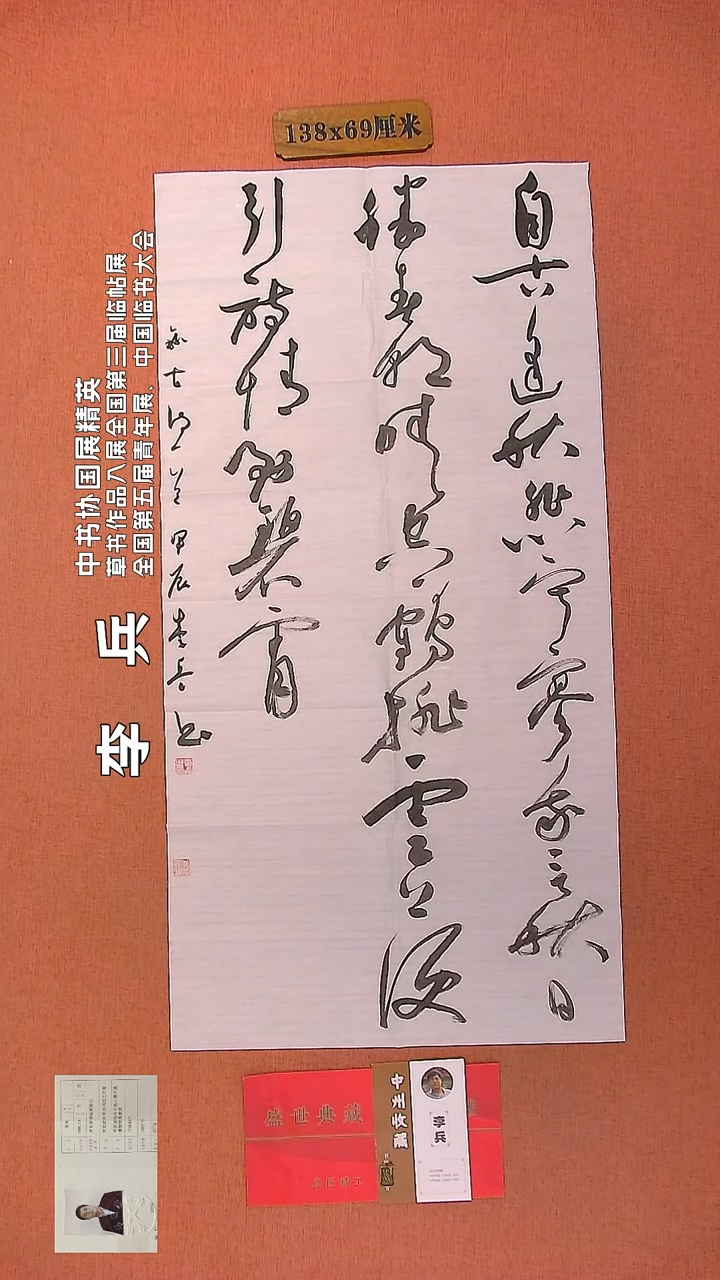 138x69厘米
自古逢秋悲寂寥我言秋日
胜春朝晴空一鹤排云上便
引诗情到碧霄
甲辰李兵书
中书协国展精英
草书作品入展全国第三届临帖展
全国第五届青年展、中国临书大会
李兵
盛世典藏
中州收藏
李兵